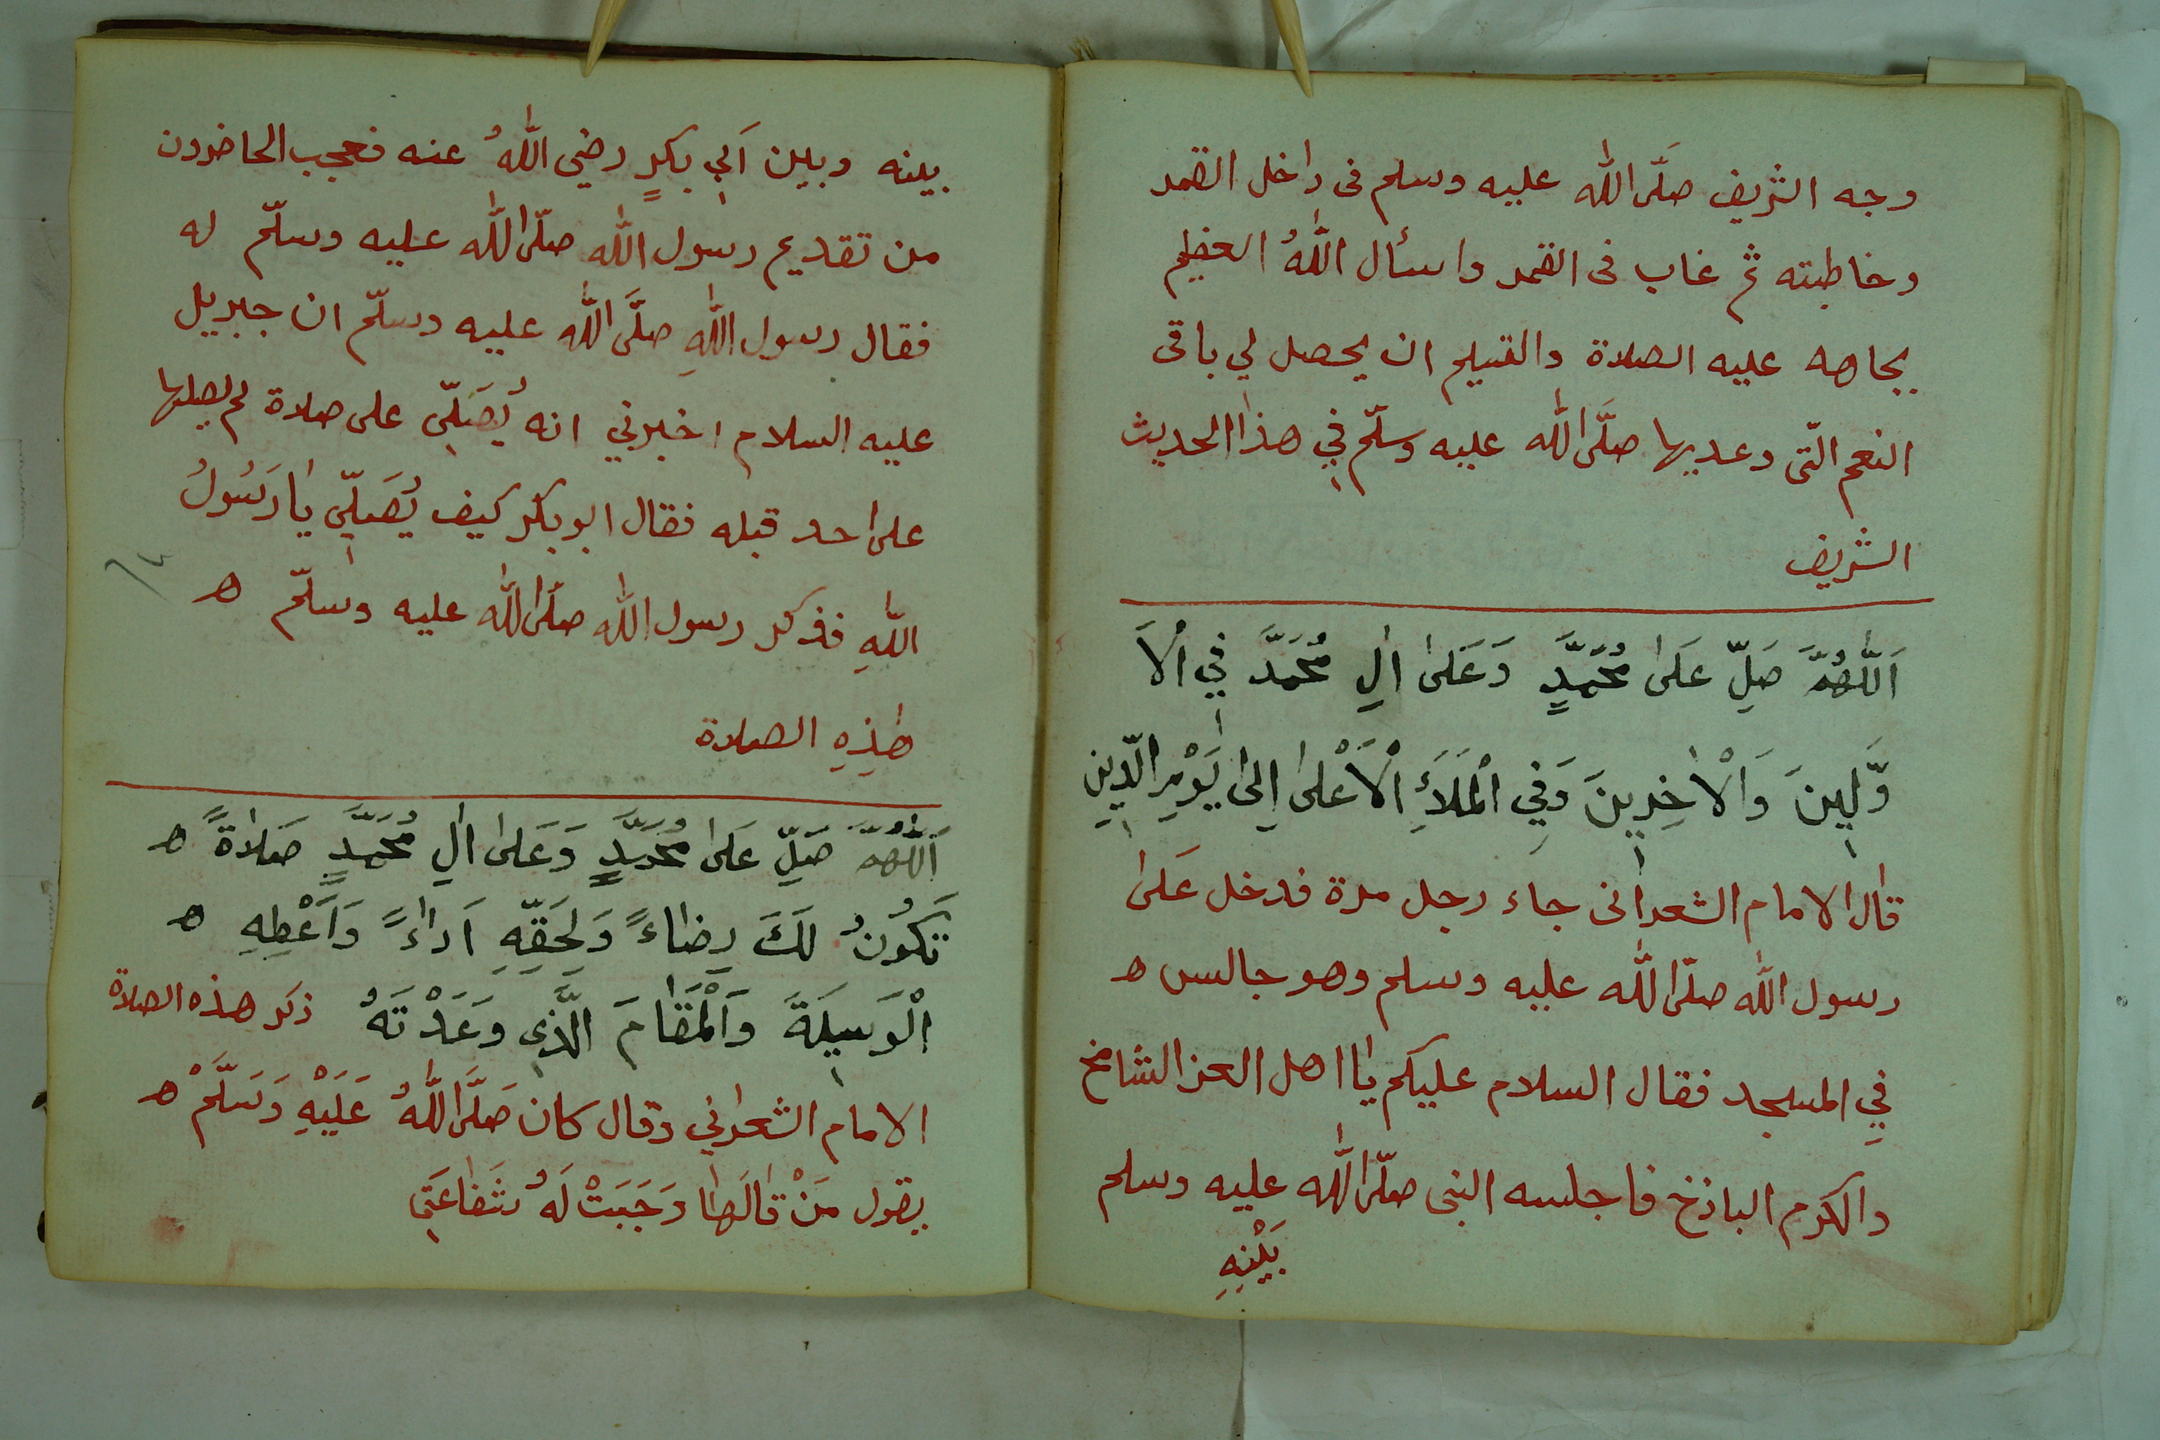 وجه الشريف صلَّى اللّٰه عليه وسلم فى داخل القمر
وخاطبته ثم غاب فى القمر واسأل اللّٰهُ العظيم
بجاهه عليه الصلاة والتسليم ان يحصل لي باقى
النعم الّتى وعد بها صلَّى اللّٰه عليه وسلّم في هذا الحديث
الشريف
اَللّٰهُمَّ صَلِّ عَلىٰ مُحَمَّدٍ وَعَلىٰ اٰلِ مُحَمَّدٍ فِي الْاَ
وَّلِينَ وَالْاٰخِرِينَ وَفِي الْمَلَأِ الْاَعْلىٰ اِلىٰ يَوْمِ الدِّينِ
قال الامام الشعرانى جاء رجل مرة فدخل عَلىٰ
رسول اللّٰه صلّى اللّٰه عليه وسلم وهو جالس ه
فِي المسجد فقال السلام عليكم يٰا اهل العز الشامخ
والكرم الباذخ فاجلسه النبى صلّى اللّٰه عليه وسلم
بَيْنِهِ
بينه وبين اَبي بكرٍ رضي اللّٰهُ عنه فعجب الحاضرون
من تقديم رسول اللّٰه صلّى اللّٰه عليه وسلّم له
فقال رسول اللّٰهِ صلَّى اللّٰه عليه وسلّم ان جبريل
عليه السلام اخبرني انه يُصَلّي على صلاة لم يصلها
على احد قبله فقال ابو بكر كيف يُصَلّي يٰا رَسُولُ
اللّٰهِ فذكر رسول اللّٰه صلّى اللّٰه عليه وسلّم ه
هٰذِهِ الصلاة
اَللّٰهُمَّ صَلِّ عَلىٰ مُحَمَّدٍ وَعَلىٰ اٰلِ مُحَمَّدٍ صَلاٰةً ه
تَكُونُ لَكَ رِضٰاءً وَلِحَقِّهِ اَدٰاءً وَاَعْطِهِ ه
الْوَسِيلَةَ وَالْمَقٰامَ الَّذِي وَعَدْتَهُ ذكر هذه الصلاة
الامام الشعراني وقال كان صَلَّى اللّٰهُ عَلَيْهِ وَسَلَّمْ ه
يقول مَنْ قٰالَهٰا وَجَبَتْ لَهُ شَفٰاعَتِي